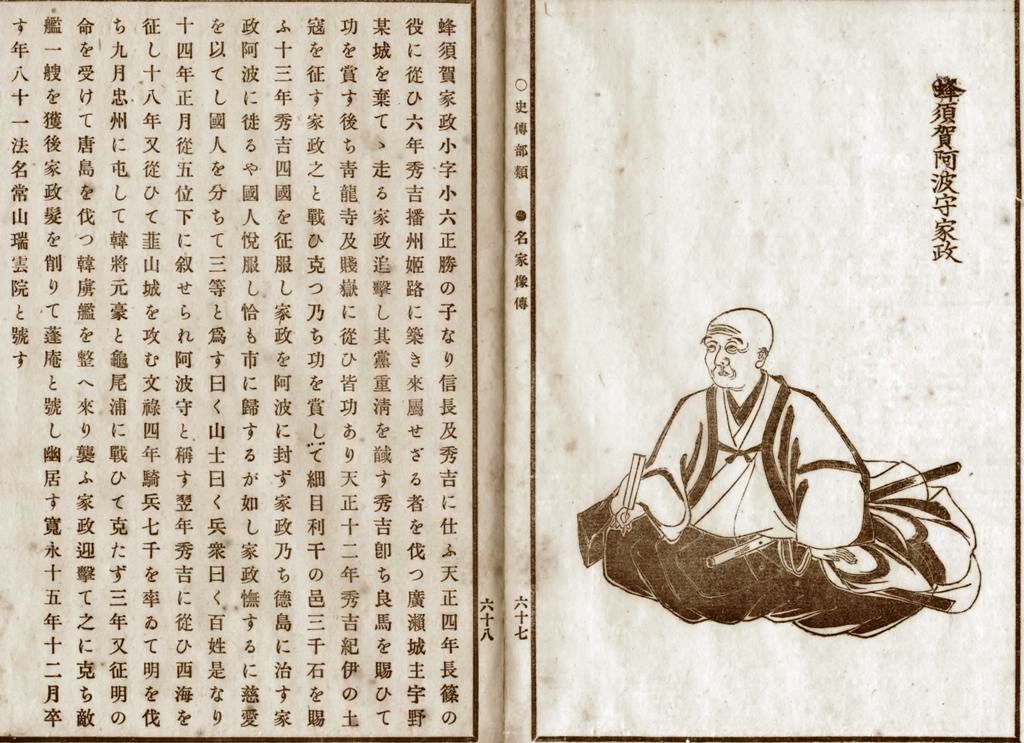 蜂須賀阿波守家政
○史傳部類 ●名家像傳 六十七
六十八
蜂須賀家政小字小六正勝の子なり信長及秀吉に仕ふ天正四年長篠の
役に從ひ六年秀吉播州姬路に築き來屬せざる者を伐つ廣瀨城主宇野
某城を棄てゝ走る家政追擊し其黨重淸を馘す秀吉卽ち良馬を賜ひて
功を賞す後ち靑龍寺及賤嶽に從ひ皆功あり天正十二年秀吉紀伊の土
寇を征す家政之と戰ひ克つ乃ち功を賞して細目利干の邑三千石を賜
ふ十三年秀吉四國を征服し家政を阿波に封ず家政乃ち德島に治す家
政阿波に徙るや國人悅服し恰も市に歸するが如し家政憮するに慈愛
を以てし國人を分ちて三等と爲す曰く山士曰く兵衆曰く百姓是なり
十四年正月從五位下に叙せられ阿波守と稱す翌年秀吉に從ひ西海を
征し十八年又從ひて韮山城を攻む文祿四年騎兵七千を率ゐて明を伐
ち九月忠州に屯して韓將元豪と龜尾浦に戰ひて克たず三年又征明の
命を受けて唐島を伐つ韓虜艦を整へ來り襲ふ家政迎擊て之に克ち敵
艦一艘を獲後家政髮を削りて蓬庵と號し幽居す寬永十五年十二月卒
す年八十一法名常山瑞雲院と號す